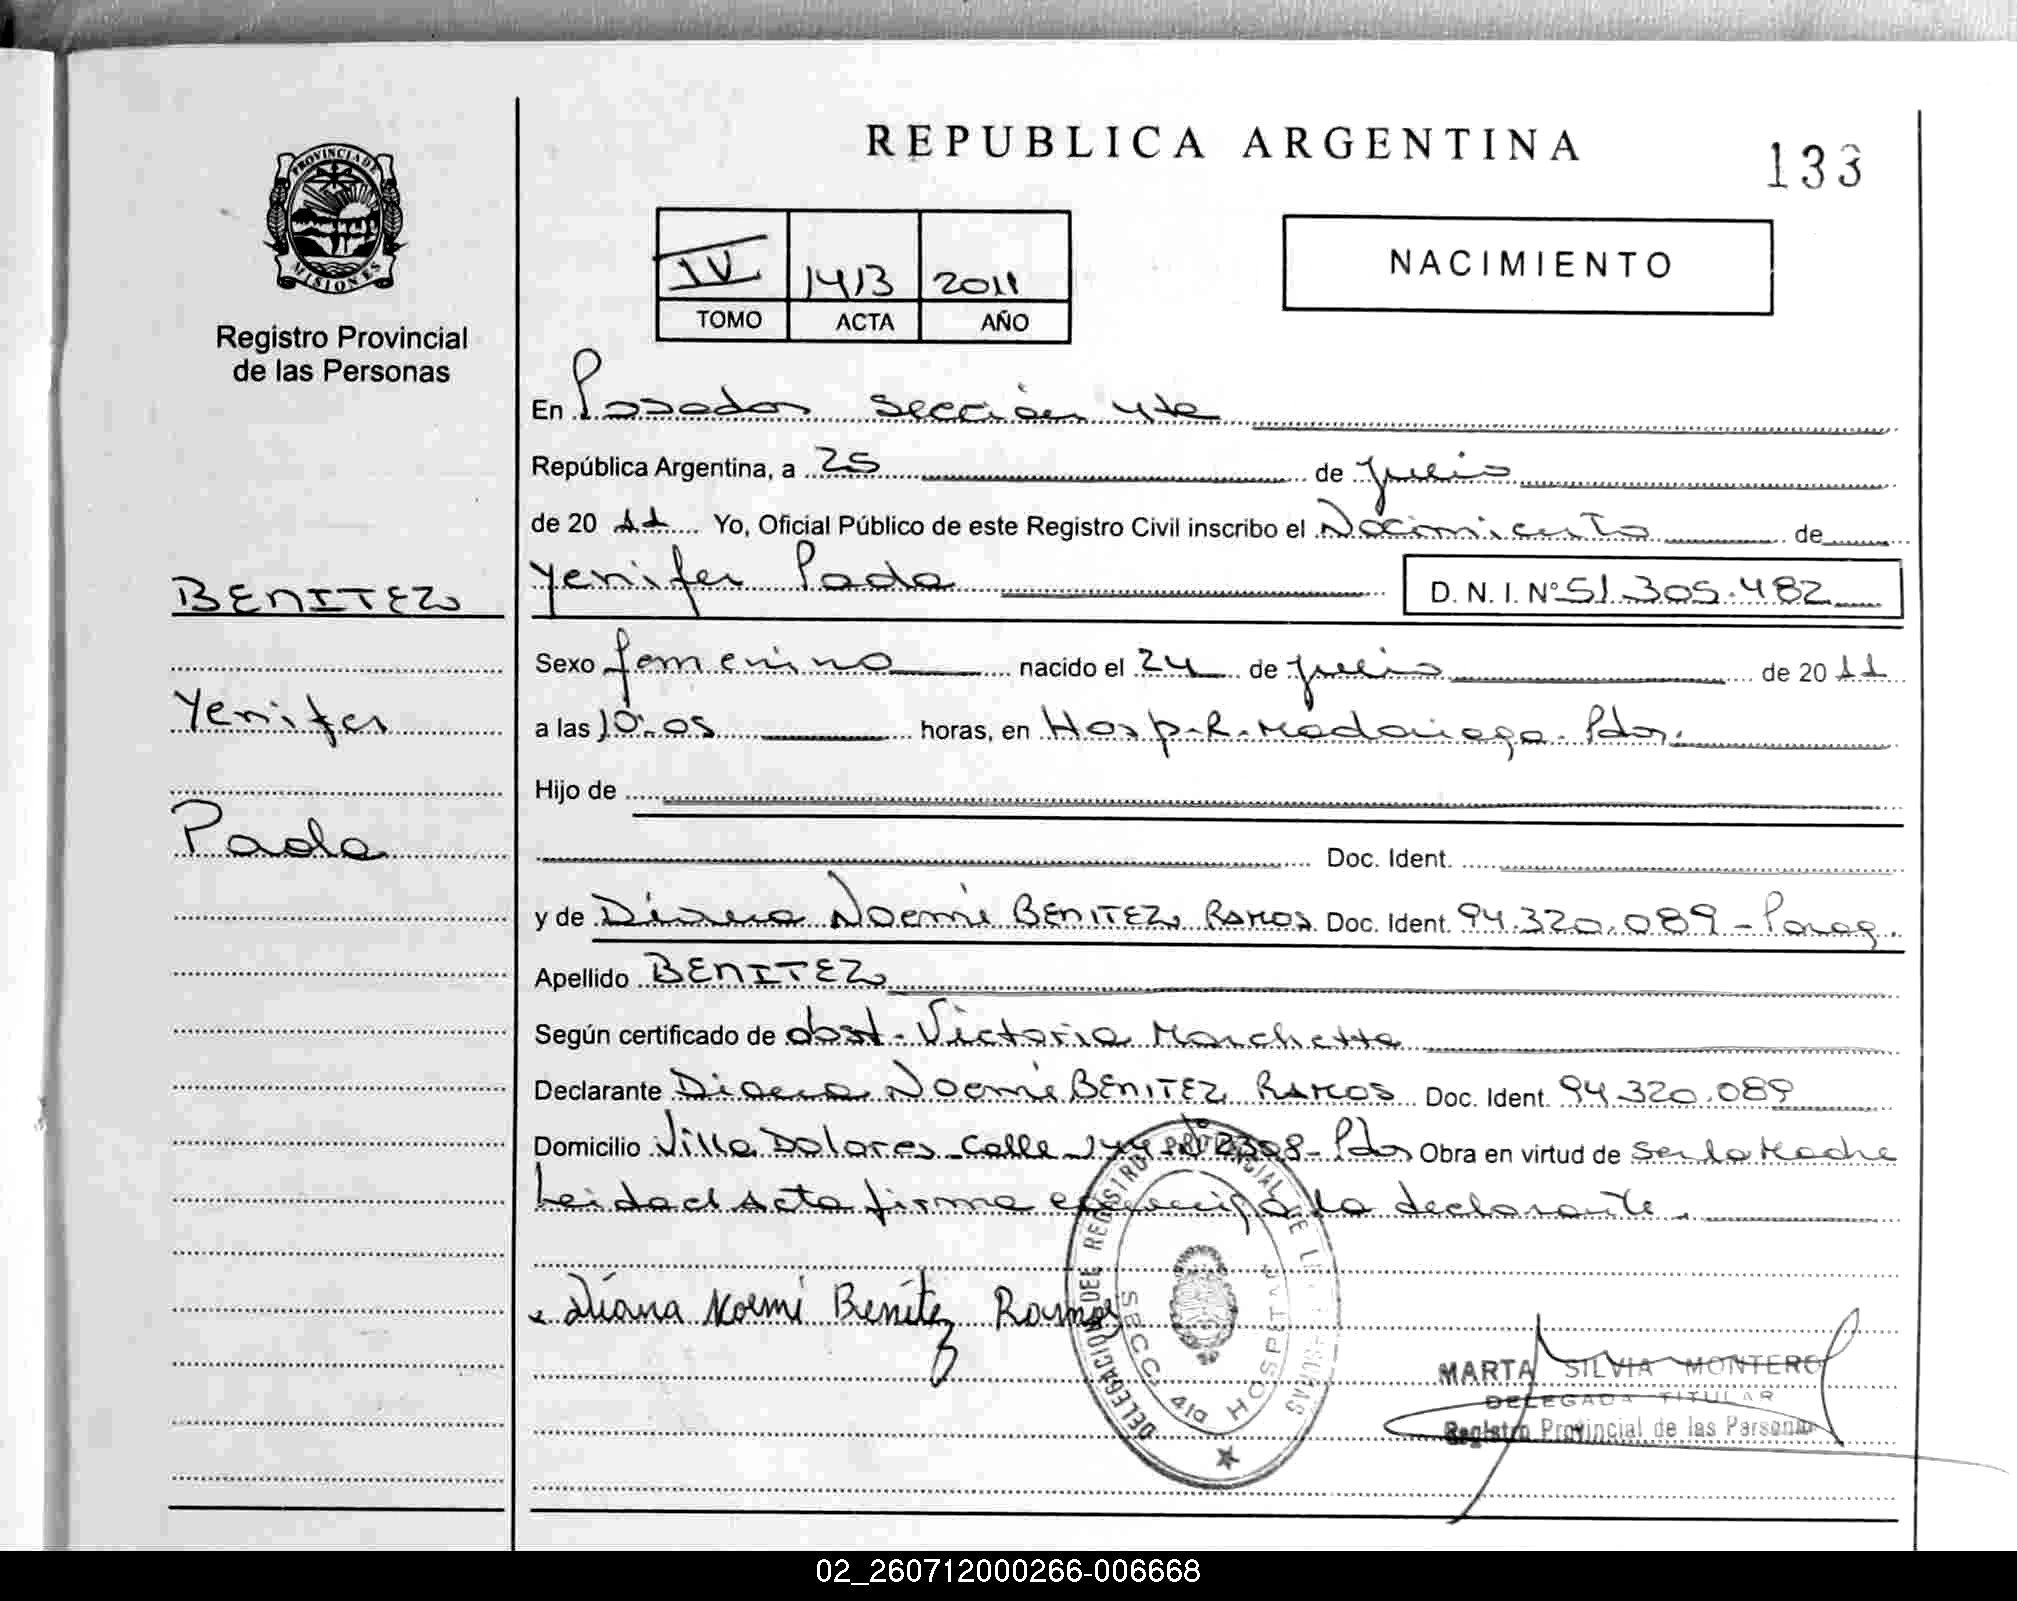 REPUBLICA ARGENTINA
133
PROVINCIA DE MISIONES
Registro Provincial
de las Personas
IV 1413 2011
TOMO ACTA AÑO
NACIMIENTO
En Posadas sección 4ta
República Argentina, a 25 de julio
de 20 11 Yo, Oficial Público de este Registro Civil inscribo el Nacimiento de
BENITEZ
Yenifer Paola D. N. I. Nº 51.305.482
Sexo femenino nacido el 24 de julio de 20 11
Yenifer
a las 10:05 horas, en Hosp. R. Madariaga. Pdas.
Hijo de
Paola
Doc. Ident.
y de Diana Noemi BENITEZ RAMOS Doc. Ident. 94.320.089 - Parag.
Apellido BENITEZ
Según certificado de obst. Victoria
Declarante Diana Noemi BENITEZ RAMOS Doc. Ident. 94.320.089
Domicilio Villa Dolores Calle 144 Nº 2308 - Pdas Obra en virtud de ser la Madre
Leida el Acta firma conmigo la declarante.
Diana Noemi Benítez Ramos
DELEGACION DEL REGISTRO PROVINCIAL DE LAS PERSONAS
SECC. 4ta HOSPITAL
MARTA SILVIA MONTERO
DELEGADA TITULAR
Registro Provincial de las Personas
02_260712000266-006668